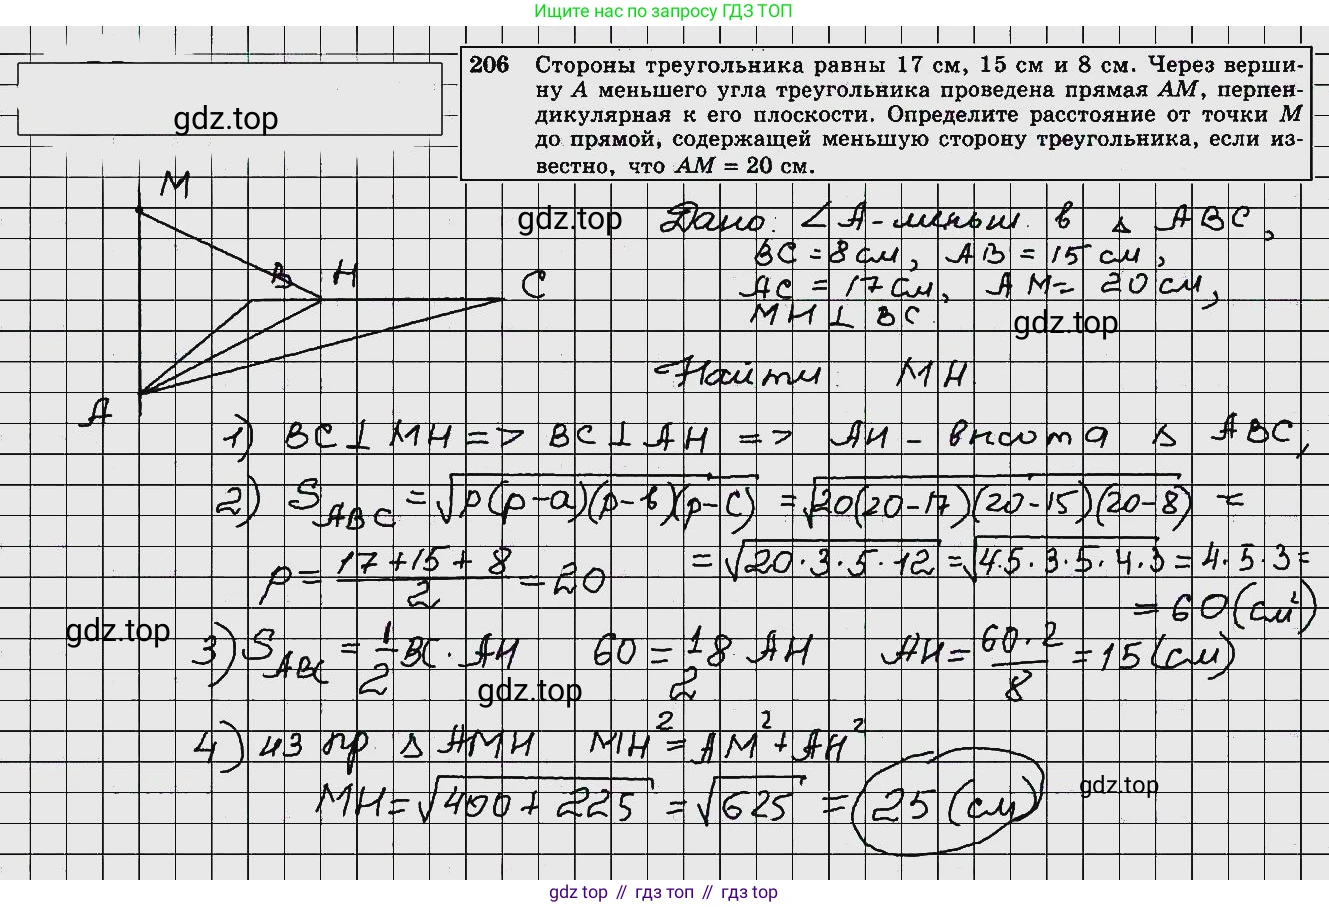 Ищите нас по запросу ГДЗ ТОП
gdz.top
206 Стороны треугольника равны 17 см, 15 см и 8 см. Через верши-
ну A меньшего угла треугольника проведена прямая AM, перпен-
дикулярная к его плоскости. Определите расстояние от точки M
до прямой, содержащей меньшую сторону треугольника, если из-
вестно, что AM = 20 см.
M
B H C
A
gdz.top
Дано: ∠A - меньш. в Δ ABC,
BC = 8 см, AB = 15 см,
AC = 17 см, AM = 20 см,
MH ⊥ BC
gdz.top
Найти MH
1) BC ⊥ MH => BC ⊥ AH => AH - высота Δ ABC,
2) S_ABC = √p(p-a)(p-b)(p-c) = √20(20-17)(20-15)(20-8) =
p = (17+15+8)/2 = 20
= √20·3·5·12 = √4·5·3·5·4·3 = 4·5·3 =
= 60 (см²)
gdz.top
3) S_ABC = 1/2 BC · AH 60 = 1/2 8 AH AH = 60·2/8 = 15 (см)
gdz.top
4) из пр Δ AMH MH² = AM² + AH²
MH = √400 + 225 = √625 = 25 (см)
gdz.top
gdz top // гдз топ // gdz top